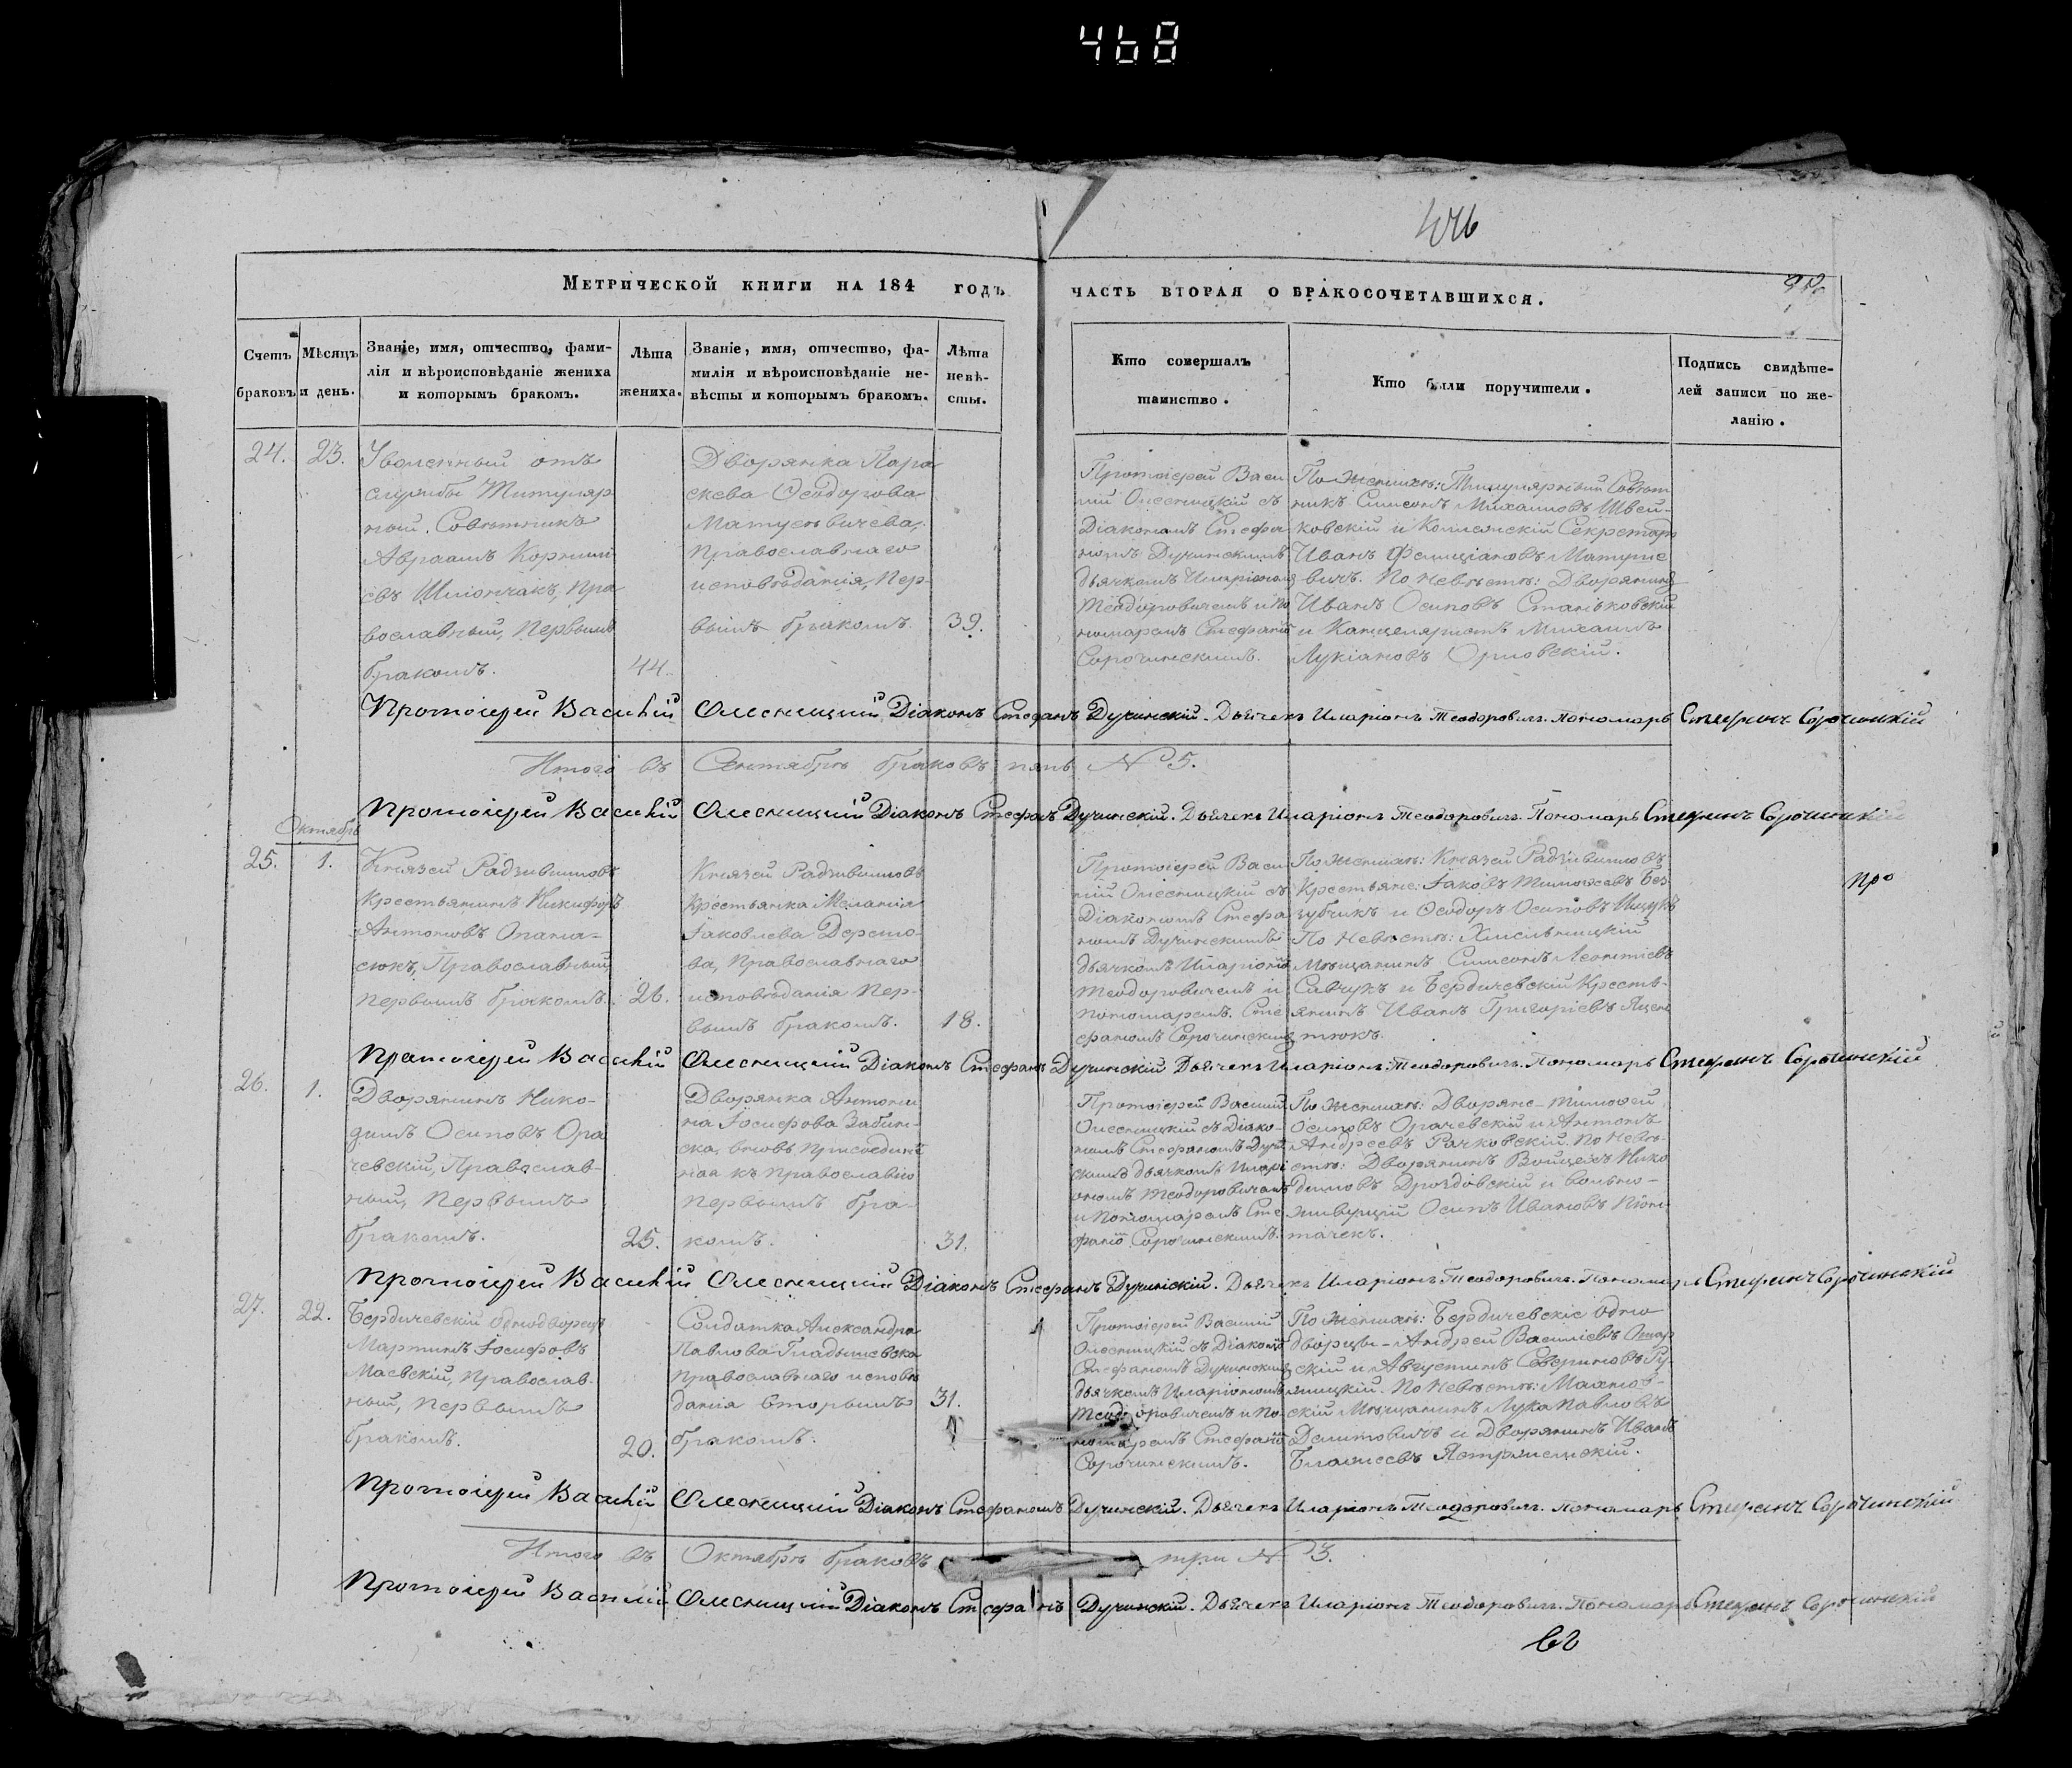 468
Метрической книги на 184 годъ
часть вторая о бракосочетавшихся.
Счетъ браковъ
Мѣсяцъ и день.
Званіе, имя, отчество, фами-
лія и вѣроисповѣданіе жениха
и которымъ бракомъ.
Лѣта
жениха.
Званіе, имя, отчество, фа-
милія и вѣроисповѣданіе не-
вѣсты и которымъ бракомъ.
Лѣта
невѣ-
сты.
Кто совершалъ
таинство.
Кто были поручители.
Подпись свидѣте-
лей записи по же-
ланію.
24.
23.
Уволенный отъ
службы Титуляр
ный Совѣтникъ
Авраамъ Корнилі
евъ Шліончакъ, Пра
вославный, Первымъ
бракомъ.
44.
Дворянка Пара
скева Ѳеодорова
Матусѣвичева,
Православнаго
исповѣданія, Пер-
вымъ бракомъ.
39.
Протоіерей Васи
лій Олесницкій съ
Діакономъ Стефа
номъ Дучинскимъ
дьячкомъ Иларіономъ
Теодоровичемъ и По
номаремъ Стефаномъ
Сорочинскимъ.
По женихѣ: Титулярный Совѣт
никъ Симеонъ Михаиловъ Швей-
ковскій и Колежскій Секретарь
Иванъ Фелиціановъ Матусе
вичъ. По невѣстѣ: Дворянинъ
Иванъ Осиповъ Станьковскій
и Канцеляристъ Михаилъ
Лукіановъ Орловскій.
Протоіерей Василій Олесницкій Діаконъ Стефанъ Дучинскій. Дьячекъ Иларіонъ Теодоровичъ. Пономарь Стефанъ Сорочинскій
Итого въ Сентябрѣ браковъ пять № 5.
Протоіерей Василій Олесницкій Діаконъ Стефанъ Дучинскій. Дьячекъ Иларіонъ Теодоровичъ. Пономарь Стефанъ Сорочинскій
Октябрь
25.
1.
Князей Радзивиловъ
Крестьянинъ Никифоръ
Антоновъ Опана-
сюкъ, Православный
первымъ бракомъ.
26.
Князей Радзивиловъ
Крестьянка Меланія
Іаковлева
Православнаго
исповѣданія Пер-
вымъ бракомъ.
18.
Протоіерей Васи
лій Олесницкій съ
Діакономъ Стефа
номъ Дучинскимъ
дьячкомъ Иларіономъ
Теодоровичемъ и
Пономаремъ Сте
фаномъ Сорочинскимъ
По женихѣ: Князей Радзивиловъ
Крестьяне: Іаковъ Тимоѳеевъ Без-
зубчикъ и Ѳеодоръ Осиповъ Ищукъ
По невѣстѣ: Хмельницкій
Мѣщанинъ Симеонъ Леонтіевъ
Савчукъ и Бердичевскій Кресть-
янинъ Иванъ Григоріевъ Яцен
тюкъ.
Про
Протоіерей Василій Олесницкій Діаконъ Стефанъ Дучинскій Дьячекъ Иларіонъ Теодоровичъ. Пономарь Стефанъ Сорочинскій
26.
1.
Дворянинъ Нико-
димъ Осиповъ Ора
чевскій, Православ-
ный, Первымъ
бракомъ.
25.
Дворянка Антони
на Іосифова Забин-
ска, вновь присоединен
ная къ Православію
первымъ бра-
комъ.
31.
Протоіерей Василій
Олесницкій съ Діако-
номъ Стефаномъ Дучин
скимъ дьячкомъ Иларі
ономъ Теодоровичемъ
и Пономаремъ Сте
фаномъ Сорочинскимъ.
По женихѣ: Дворяне - Тимоѳей
Осиповъ Орачевскій и Антонъ
Андреевъ Рачковскій. По невѣ-
стѣ: Дворянинъ Войцехъ Нико
димовъ Дроздовскій и вольно-
живущій Осипъ Ивановъ
Протоіерей Василій Олесницкій Діаконъ Стефанъ Дучинскій. Дьячекъ Иларіонъ Теодоровичъ. Пономарь Стефанъ Сорочинскій
27.
22.
Бердичевскій Однодворецъ
Мартинъ Іосифовъ
Маевскій, Православ-
ный, Первымъ
бракомъ.
20.
Солдатка Александра
Павлова Гладышевска
Православнаго исповѣ
данія вторымъ
бракомъ.
31.
Протоіерей Василій
Олесницкій съ Діакономъ
Стефаномъ Дучинскимъ
дьячкомъ Иларіономъ
Теодоровичемъ и По-
номаремъ Стефаномъ
Сорочинскимъ.
По женихѣ: Бердичевскіе Одно
дворцы - Андрей Василіевъ
скій и Августинъ Севериновъ
лицкій. По невѣстѣ: Махнов-
скій Мѣщанинъ Лука Павловъ
и Дворянинъ Иванъ
Благоіевъ Ястржемскій.
Протоіерей Василій Олесницкій Діаконъ Стефаномъ Дучинскій. Дьячекъ Иларіонъ Теодоровичъ. Пономарь Стефанъ Сорочинскій
Итого въ Октябрѣ браковъ три № 3.
Протоіерей Василій Олесницкій Діаконъ Стефанъ Дучинскій. Дьячекъ Иларіонъ Теодоровичъ. Пономарь Стефанъ Сорочинскій